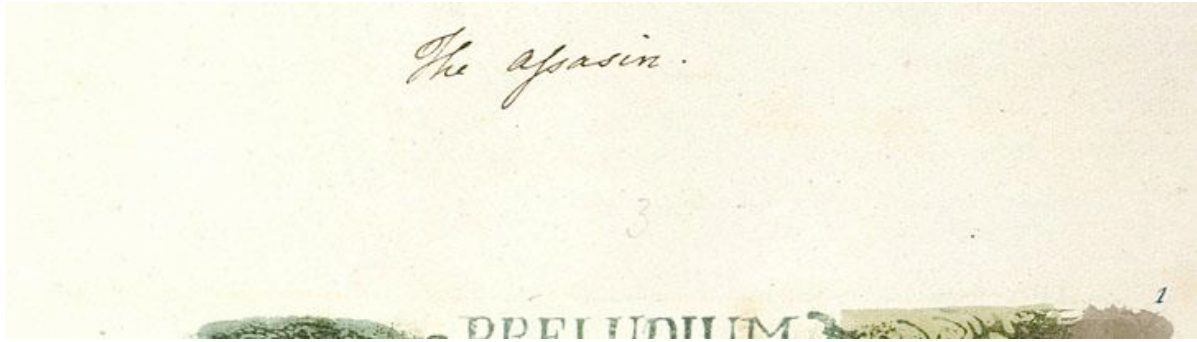 The aſsasin.
3
1
PRELUDIUM